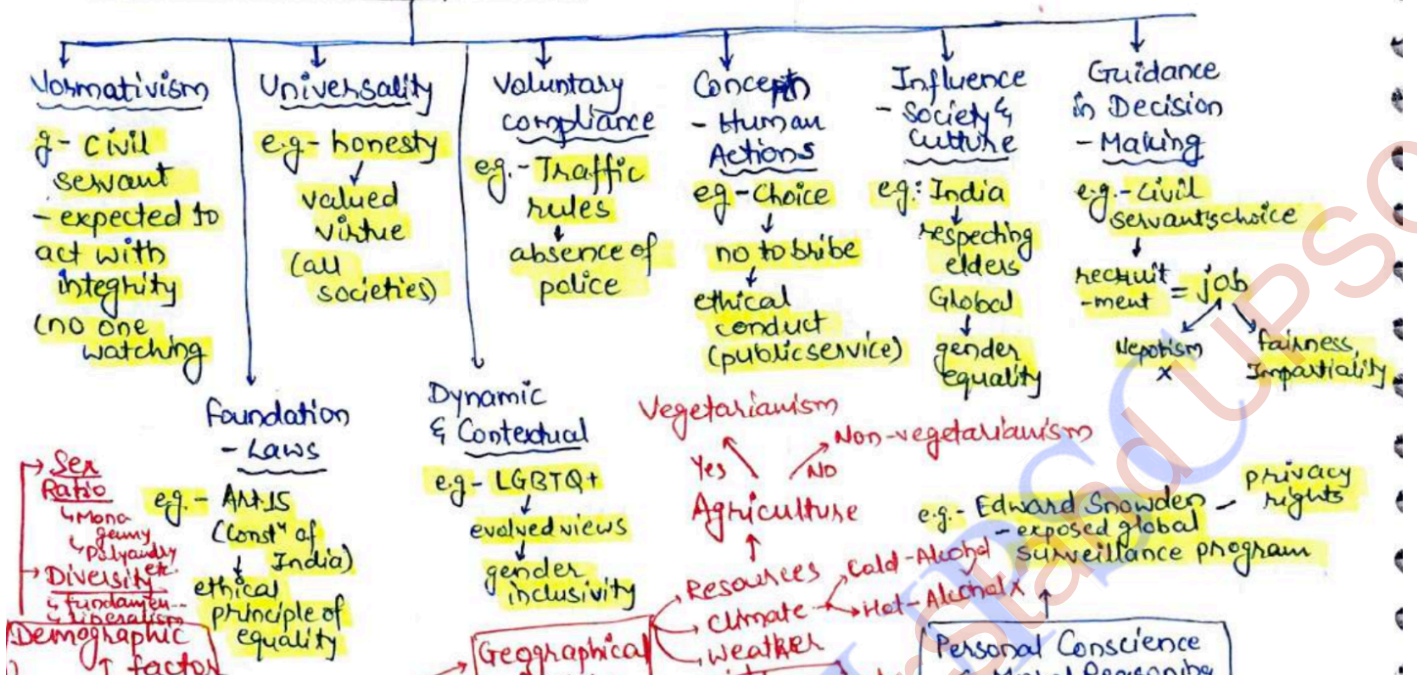 Normativism
g- Civil
servant
- expected to
act with
integrity
(no one
watching
Universality
e.g- honesty
valued
virtue
(all
societies)
Voluntary
compliance
eg.- Traffic
rules
absence of
police
Concept
- Human
Actions
eg- Choice
no to bribe
ethical
conduct
(public service)
Influence
- Society &
Culture
eg: India
respecting
elders
Global
gender
equality
Guidance
in Decision
- Making
e.g.- Civil
servant's choice
recruit
-ment = job
Nepotism
x
fairness,
Impartiality
foundation
- Laws
eg.- Art-15
(Constn of
India)
ethical
principle of
equality
Dynamic
& Contextual
e.g- LGBTQ+
evolved views
gender
inclusivity
Vegetarianism
Non-vegetarianism
Yes
NO
Agriculture
Resources
Climate
Weather
Cold-Alcohol
Hot-Alcohol x
e.g.- Edward Snowden - privacy
rights
- exposed global
surveillance program
Sex
Ratio
Mono
gamy
Polyandry
etc.
Diversity
fundamen--
liberalism
Demographic
factor
Geographical
Personal Conscience
& Moral Reasoning
UPSC